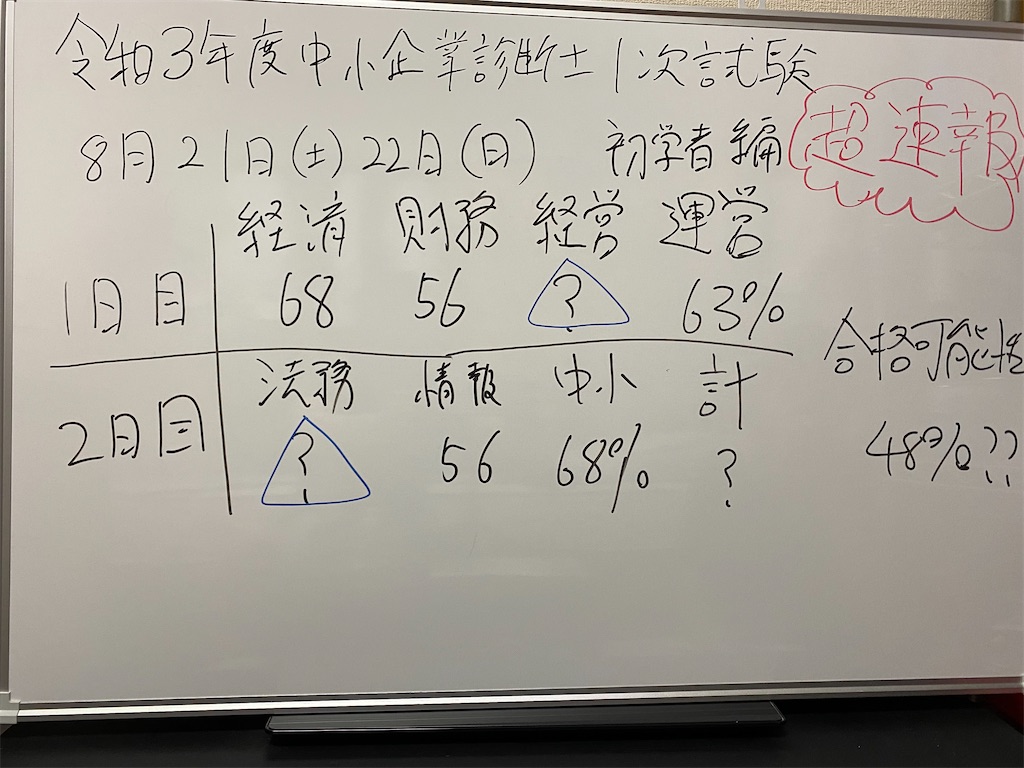 令和3年度中小企業診断士1次試験
8月21日(土)22日(日) 初学者編 超速報
経済 財務 経営 運営
1日目 68 56 ? 63%
合格可能性
法務 情報 中小 計
2日目 ? 56 68% ?
48%??